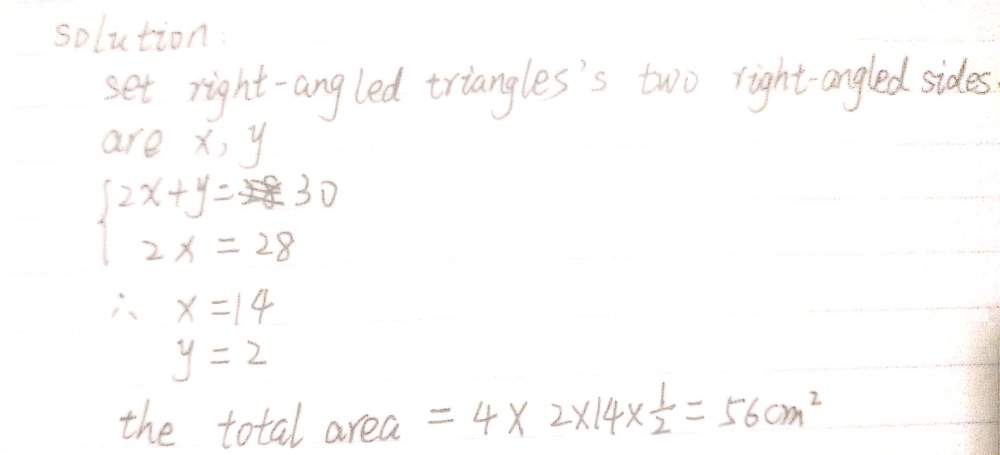 solution:
set right-angled triangles's two right-angled sides
are x, y
{2x+y=30
2x = 28
∴ x=14
y=2
the total area = 4×2×14×½=56cm²